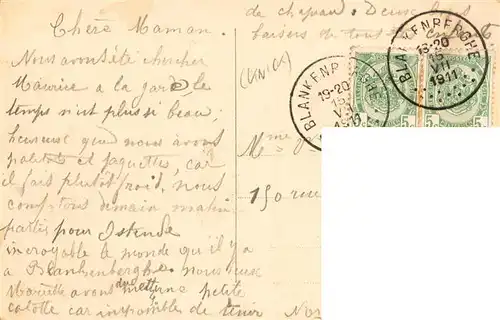 Chère Maman.
Nous avons été chercher
Maurice a la gare, le
temps n'est plus si beau;
heureuse que nous avons
paletots et jaquettes, car
il fait plutôt froid, nous
comptons demain matin
partir pour Ostende
incroyable le monde qu'il y a
a Blankenberghe. nous deux
Mariette avons du mettre une petite
calotte car impossible de tenir
de chapeau. Deux bons
baisers de tout
(UNICA)
BLANKENBERGHE
19-20
15
1911
BLANKENBERGHE
18-20
15
VII
1911
5 5
Mme
150 rue